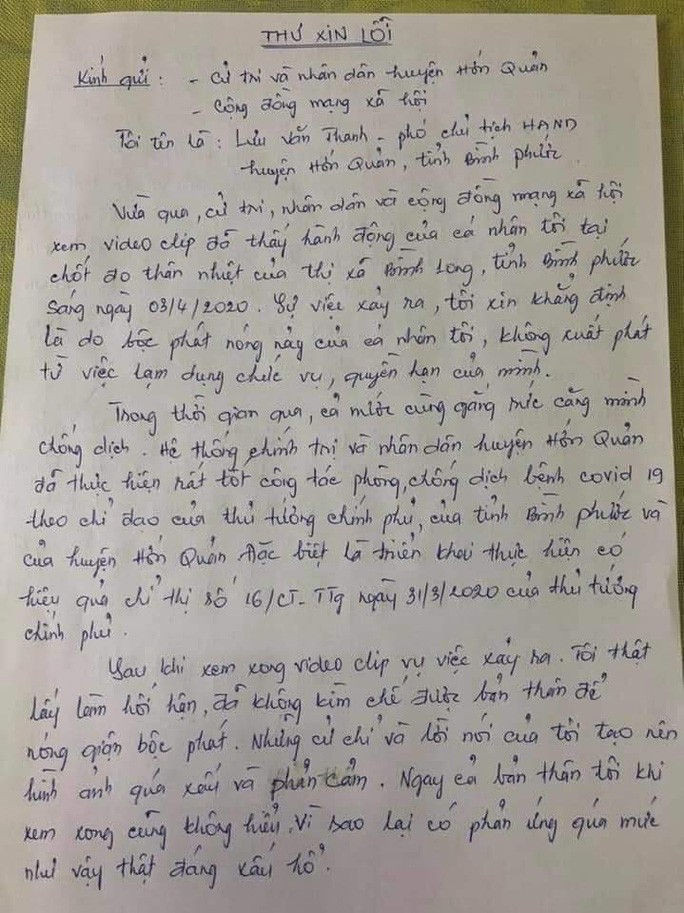 THƯ XIN LỖI
Kính gửi: - Cử tri và nhân dân huyện Hớn Quản
- Cộng đồng mạng xã hội
Tôi tên là: Lưu Văn Thanh - phó chủ tịch HĐND
huyện Hớn Quản, tỉnh Bình Phước.
Vừa qua, cử tri, nhân dân và cộng đồng mạng xã hội
xem video clip đã thấy hành động của cá nhân tôi tại
chốt đo thân nhiệt của thị xã Bình Long, tỉnh Bình Phước
sáng ngày 03/4/2020. Sự việc xảy ra, tôi xin khẳng định
là do bộc phát nóng nảy của cá nhân tôi, không xuất phát
từ việc lạm dụng chức vụ, quyền hạn của mình.
Trong thời gian qua, cả nước cùng gắng sức căng mình
chống dịch. Hệ thống chính trị và nhân dân huyện Hớn Quản
đã thực hiện rất tốt công tác phòng, chống dịch bệnh covid 19
theo chỉ đạo của thủ tướng chính phủ, của tỉnh Bình Phước và
của huyện Hớn Quản Đặc biệt là triển khai thực hiện có
hiệu quả chỉ thị số 16/CT-TTg ngày 31/3/2020 của thủ tướng
chính phủ.
Sau khi xem xong video clip vụ việc xảy ra. Tôi thật
lấy làm hối hận, đã không kìm chế được bản thân để
nóng giận bộc phát. Những cử chỉ và lời nói của tôi tạo nên
hình ảnh quá xấu và phản cảm. Ngay cả bản thân tôi khi
xem xong cũng không hiểu. Vì sao lại có phản ứng quá mức
như vậy thật đáng xấu hổ.